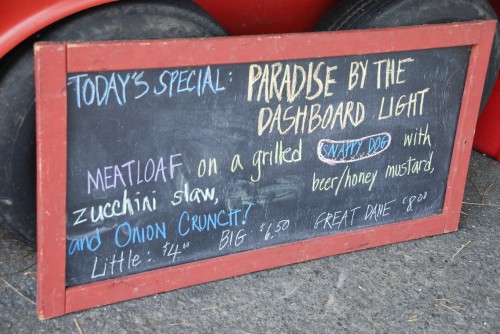 TODAY'S SPECIAL: PARADISE BY THE
DASHBOARD LIGHT
MEATLOAF on a grilled SNAPPY DOG with
zucchini slaw, beer/honey mustard,
and ONION CRUNCH!
Little: $4.00 BIG: $6.50 GREAT DANE $8.00